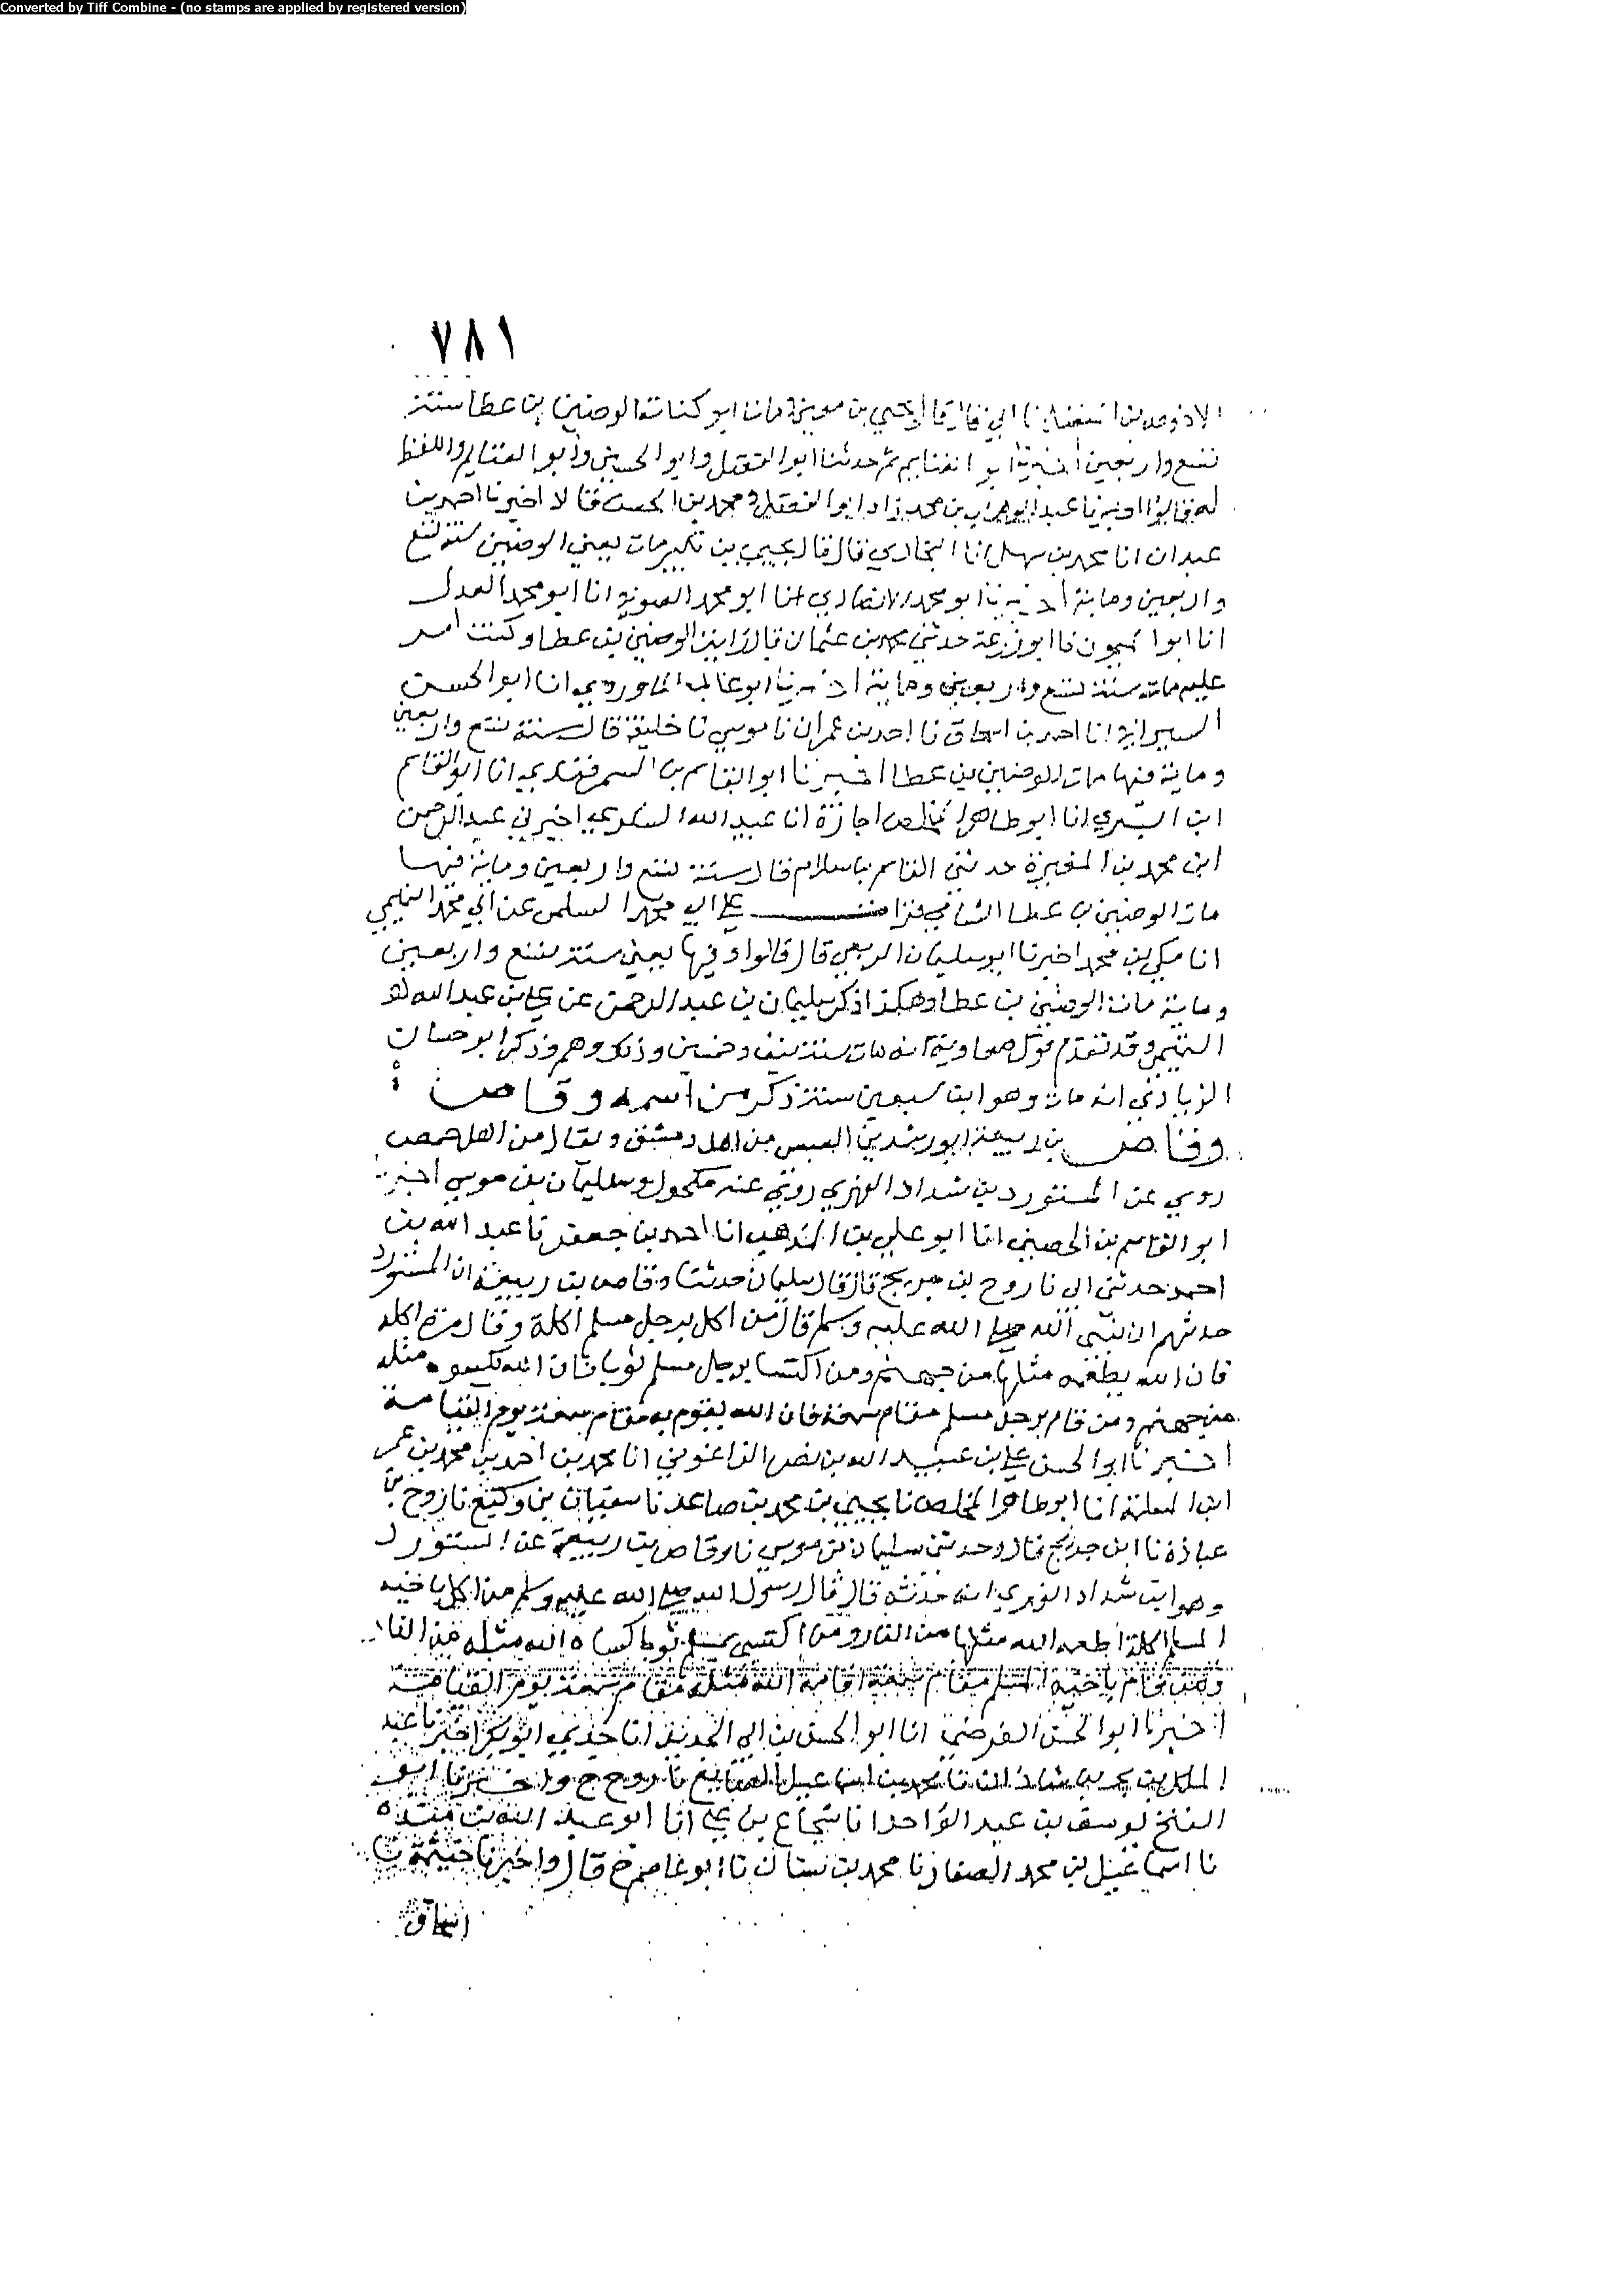 Converted by Tiff Combine - (no stamps are applied by registered version)
٧٨١
ابي قال قال يحيي بن مات ابو كنانة الوضين بن عطا سنة
تسع واربعين ابو الغنايم ثم حدثنا ابو الفضل وابو الحسين وابو الغنايم واللفظ
له قالوا انا عبد الوهاب بن محمد زاد ابو الفضل ومحمد بن الحسن قالا اخبرنا احمد بن
عبدان انا محمد بن سهل انا البخاري قال قال يحيي بن بكير مات يعني الوضين سنة تسع
واربعين وماية ابو محمد الانصاري انا ابو محمد الصوفي انا ابو محمد العدل
انا ابو الميمون نا ابو زرعة حدثني محمد بن عثمان قال رايت الوضين بن عطا وكنت امر
عليه مات سنة تسع واربعين وماية ابو غالب الماوردي انا ابو الحسن
السيرافي انا احمد بن اسحاق نا احمد بن عمران نا موسي نا خليفة قال سنة تسع واربعين
وماية فيها مات الوضين بن عطا اخبرنا ابو القاسم بن السمرقندي انا ابو القاسم
ابن البسري انا ابو طاهر المخلص اجازة انا عبيد الله السكري اخبرني عبد الرحمن
ابن محمد بن المغيرة حدثني القاسم بن سلام قال سنة تسع واربعين وماية فيها
مات الوضين بن عطا الشامي قرات علي ابي محمد السلمي عن ابي محمد التميمي
انا مكي بن محمد اخبرنا ابو سليمان الربعي قال قالوا وفيها يعني سنة تسع واربعين
وماية مات الوضين بن عطا وهكذا ذكر سليمان بن عبد الرحمن عن علي بن عبد الله
التميمي وقد تقدم قول معاوية انه مات سنة نيف وخمسين وذلك وهم وذكر ابو حسان
الزيادي انه مات وهو ابن سبعين سنة ذكر من اسمه وقاص
وقاص بن ربيعة ابو رشدين العبسي من اهل دمشق ويقال من اهل حمص
روي عن المستورد بن شداد الفهري روي عنه مكحول وسليمان بن موسي اخبرنا
ابو القاسم بن الحصين انا ابو علي بن المذهب انا احمد بن جعفر نا عبد الله بن
احمد حدثني ابي نا روح بن جريج قال قال سليمان حدثنا وقاص بن ربيعة ان المستورد
حدثهم ان نبي الله صلي الله عليه وسلم قال من اكل برجل مسلم اكلة وقال مرة اكلة
فان الله يطعمه مثلها من جهنم ومن اكتسا برجل مسلم ثوبا فان الله يكسوه مثله
من جهنم ومن قام برجل مسلم مقام سمعة فان الله يقوم به مقام سمعة يوم القيامة
اخبرنا ابو الحسن علي بن عبيد الله بن نصر الزاغوني انا محمد بن احمد بن محمد بن عمر
ابن المسلمة انا ابو طاهر المخلص نا يحيي بن محمد بن صاعد نا سفيان بن وكيع نا روح بن
عبادة نا ابن جريج قال وحدثني سليمان بن موسي نا وقاص بن ربيعة عن المستورد
وهو ابن شداد الفهري انه حدثه قال قال رسول الله صلي الله عليه وسلم من اكل باخيه
المسلم اكلة اطعمه الله مثلها من النار ومن اكتسي بمسلم ثوبا كساه الله مثله من النار
ومن قام باخيه المسلم مقام سمعة اقامه الله مثله مقام سمعة يوم القيامة
اخبرنا ابو الحسن الفرضي انا ابو الحسن بن ابي الحديد انا جدي ابو بكر اخبرنا عبد
الملك بن محمد بن شاذان نا محمد بن اسماعيل الصايغ نا روح ح واخبرنا ابو
الفتح يوسف بن عبد الواحد انا شجاع بن علي انا ابو عبد الله بن منده
نا اسماعيل بن محمد الصفار نا محمد بن سنان نا ابو عاصم ح قال واخبرنا خيثمة نا
اسحاق